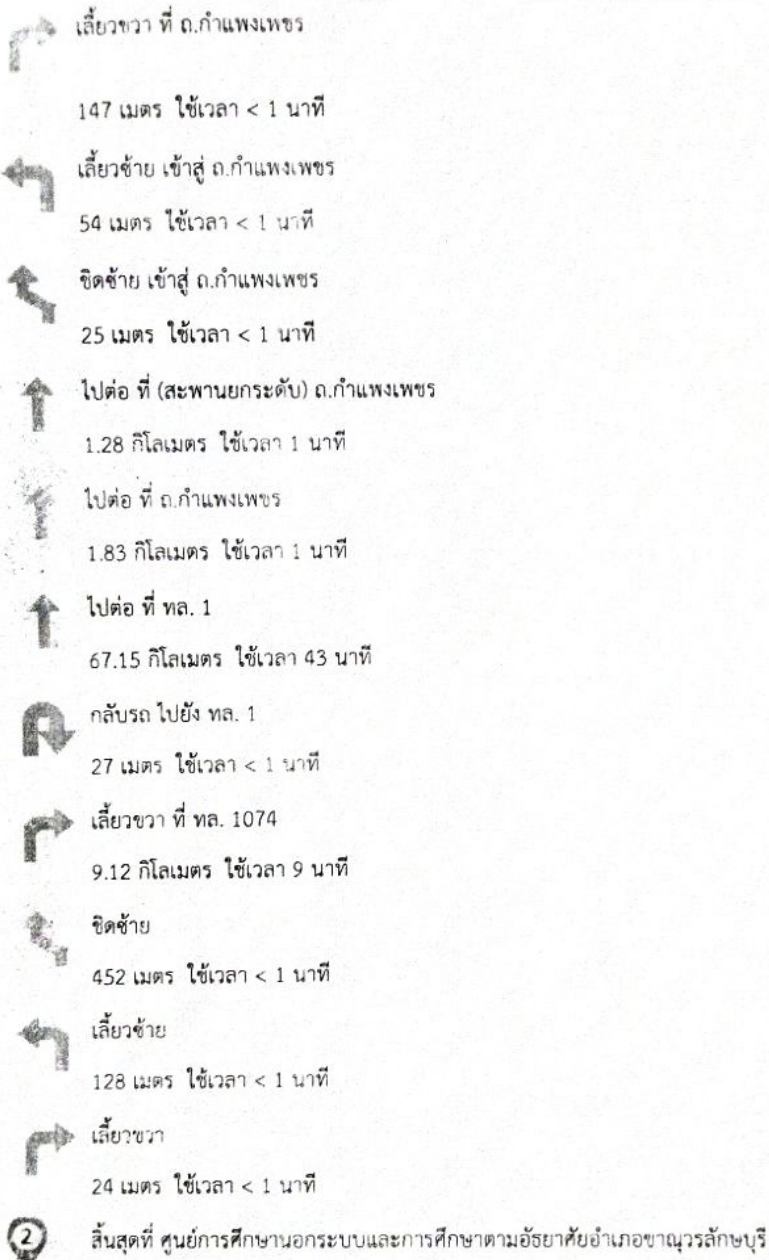 เลี้ยวขวา ที่ ถ.กำแพงเพชร
147 เมตร ใช้เวลา < 1 นาที
เลี้ยวซ้าย เข้าสู่ ถ.กำแพงเพชร
54 เมตร ใช้เวลา < 1 นาที
ชิดซ้าย เข้าสู่ ถ.กำแพงเพชร
25 เมตร ใช้เวลา < 1 นาที
ไปต่อ ที่ (สะพานยกระดับ) ถ.กำแพงเพชร
1.28 กิโลเมตร ใช้เวลา 1 นาที
ไปต่อ ที่ ถ.กำแพงเพชร
1.83 กิโลเมตร ใช้เวลา 1 นาที
ไปต่อ ที่ ทล. 1
67.15 กิโลเมตร ใช้เวลา 43 นาที
กลับรถ ไปยัง ทล. 1
27 เมตร ใช้เวลา < 1 นาที
เลี้ยวขวา ที่ ทล. 1074
9.12 กิโลเมตร ใช้เวลา 9 นาที
ชิดซ้าย
452 เมตร ใช้เวลา < 1 นาที
เลี้ยวซ้าย
128 เมตร ใช้เวลา < 1 นาที
เลี้ยวขวา
24 เมตร ใช้เวลา < 1 นาที
2 สิ้นสุดที่ ศูนย์การศึกษานอกระบบและการศึกษาตามอัธยาศัยอำเภอขาณุวรลักษบุรี